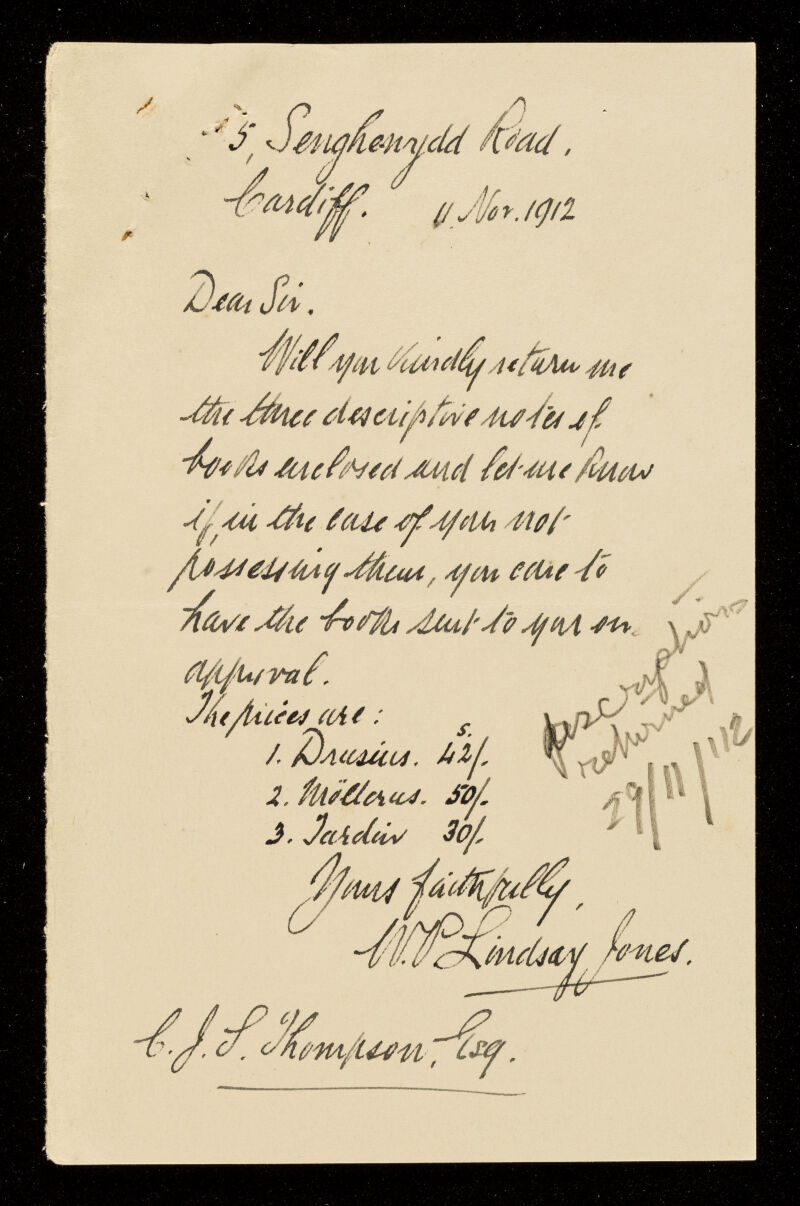 5, Senghenydd Road.
Cardiff. 11 Nov. 1912
Dear Sir.
Will you kindly return me
the three descriptive notes of
books enclosed and let me know
if, in the case of your not
possessing them, you care to
have the books sent to you on
approval.
The prices are:
s.
1. Drusius. 42/-
2. Möllerus. 50/-
3. Jardin 30/-
Yours faithfully,
W.P Lindsay Jones.
C. J. S. Thompson, Esq.
Descriptions
returned
29/11/'12